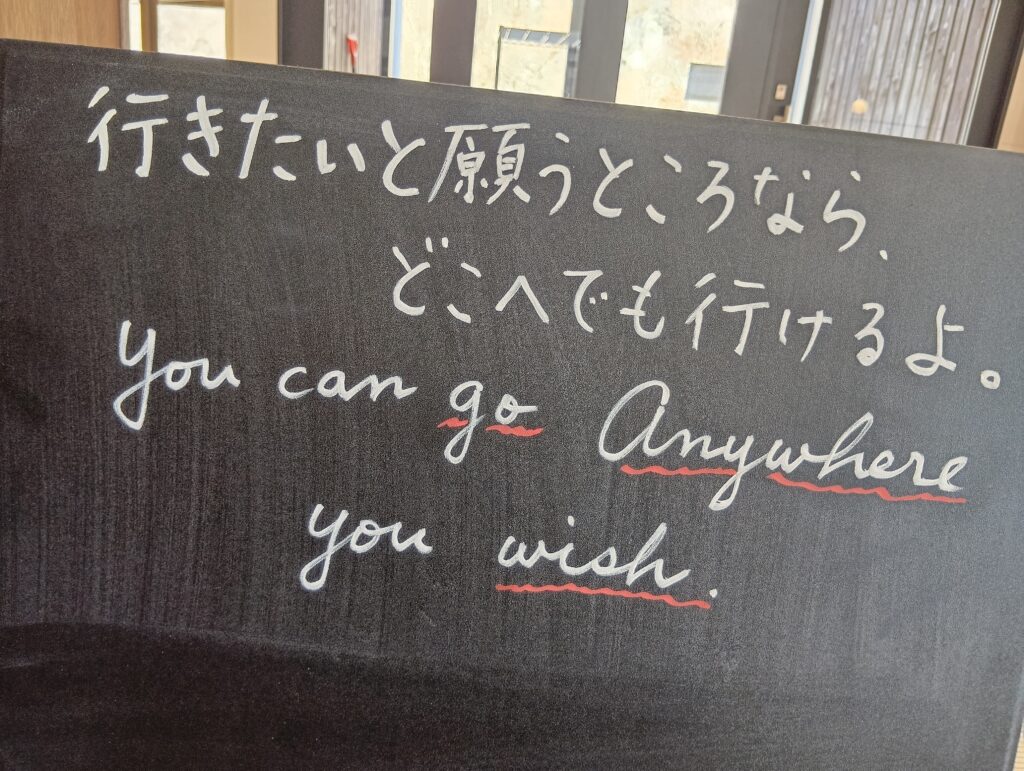 行きたいと願うところなら、
どこへでも行けるよ。
You can go Anywhere
you wish.